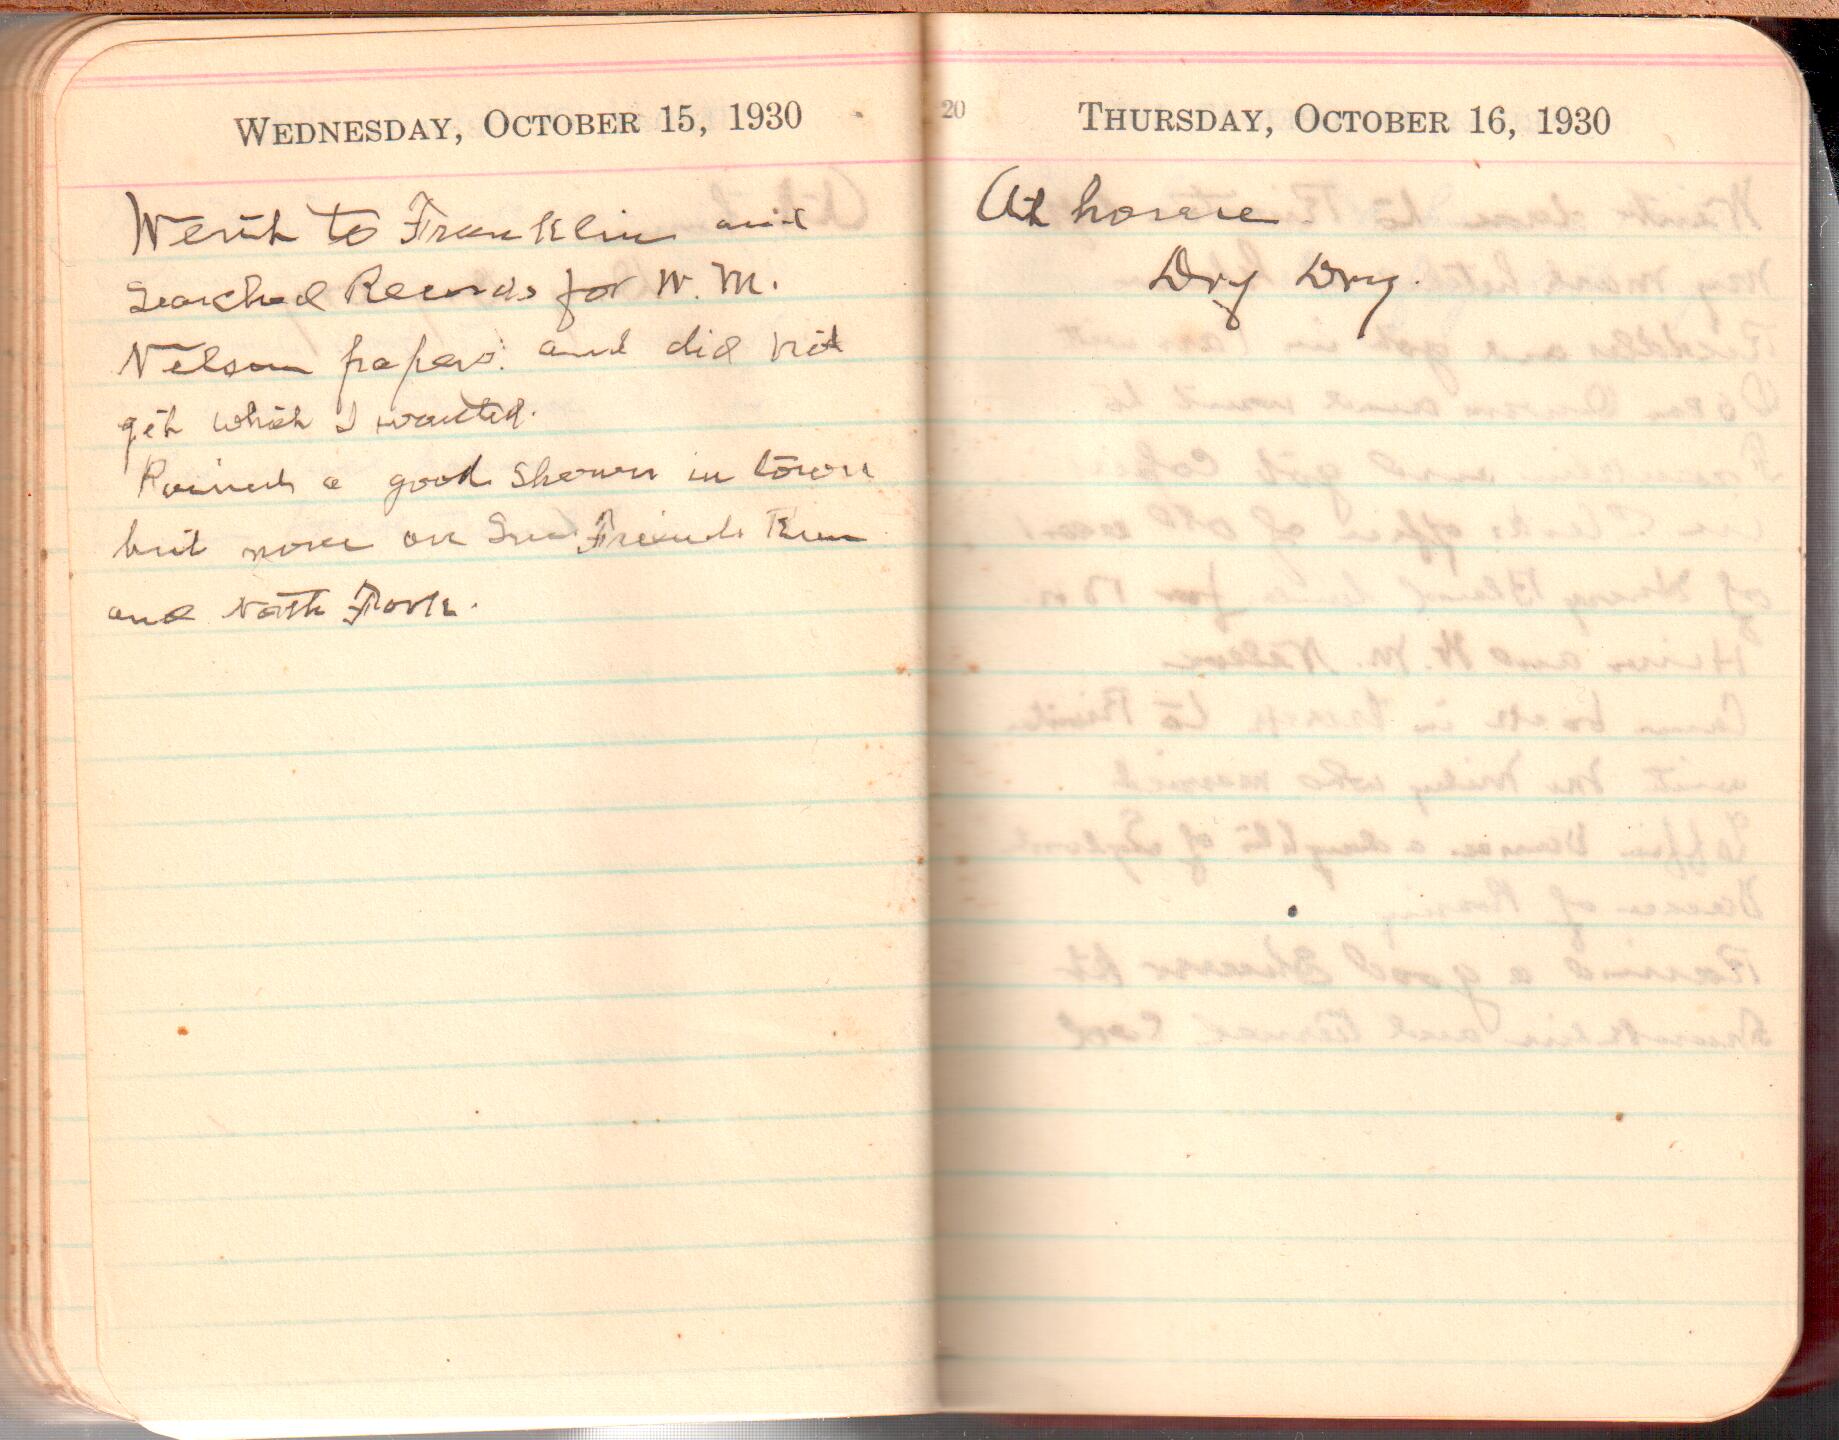 WEDNESDAY, OCTOBER 15, 1930
Went to Franklin and
Searched Records for W. M.
Nelson papers. and did not
get which I wanted.
Rained a good Shower in town
but none on Friends Run
and North Fork.
20
THURSDAY, OCTOBER 16, 1930
At home
Dry Dry.